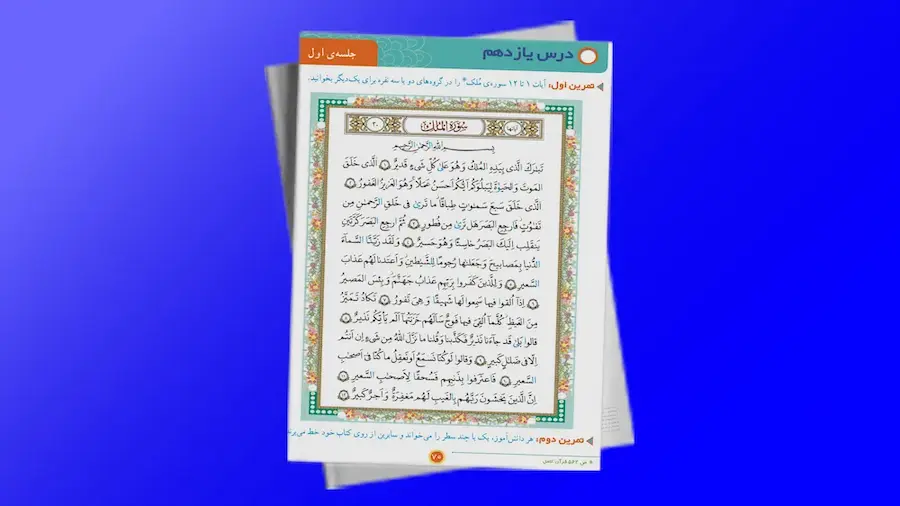 درس یازدهم
جلسه‌ی اول
تمرین اول: آیات ۱ تا ۱۲ سوره‌ی مُلک* را در گروه‌های دو یا سه نفره برای یک‌دیگر بخوانید.
آیاتها سُورَةُ المُلك ٣٠
بِسمِ اللهِ الرَّحمٰنِ الرَّحیمِ
تَبٰرَكَ الَّذی بِیَدِهِ المُلكُ وَ هُوَ عَلیٰ كُلِّ شَیءٍ قَدیرٌ ١ اَلَّذی خَلَقَ
المَوتَ وَ الحَیوٰةَ لِیَبلُوَكُم اَیُّكُم اَحسَنُ عَمَلًا وَ هُوَ العَزیزُ الغَفورُ ٢
اَلَّذی خَلَقَ سَبعَ سَمٰوٰتٍ طِباقًا ما تَریٰ فی خَلقِ الرَّحمٰنِ مِن
تَفٰوُتٍ فَارجِعِ البَصَرَ هَل تَریٰ مِن فُطورٍ ٣ ثُمَّ ارجِعِ البَصَرَ كَرَّتَینِ
یَنقَلِب اِلَیكَ البَصَرُ خاسِئًا وَ هُوَ حَسیرٌ ٤ وَ لَقَد زَیَّنَّا السَّماءَ
الدُّنیا بِمَصابیحَ وَ جَعَلناها رُجومًا لِلشَّیٰطینِ وَ اَعتَدنا لَهُم عَذابَ
السَّعیرِ ٥ وَ لِلَّذینَ كَفَروا بِرَبِّهِم عَذابُ جَهَنَّمَ وَ بِئسَ المَصیرُ
٦ اِذا اُلقوا فیها سَمِعوا لَها شَهیقًا وَ هِیَ تَفورُ ٧ تَكادُ تَمَیَّزُ
مِنَ الغَیظِ كُلَّما اُلقِیَ فیها فَوجٌ سَاَلَهُم خَزَنَتُها اَلَم یَأتِكُم نَذیرٌ ٨
قالوا بَلیٰ قَد جاءَنا نَذیرٌ فَكَذَّبنا وَ قُلنا ما نَزَّلَ اللهُ مِن شَیءٍ اِن اَنتُم
اِلّا فی ضَلالٍ كَبیرٍ ٩ وَ قالوا لَو كُنّا نَسمَعُ اَو نَعقِلُ ما كُنّا فی اَصحٰبِ
السَّعیرِ ١٠ فَاعتَرَفوا بِذَنبِهِم فَسُحقًا لِاَصحٰبِ السَّعیرِ ١١
اِنَّ الَّذینَ یَخشَونَ رَبَّهُم بِالغَیبِ لَهُم مَغفِرَةٌ وَ اَجرٌ كَبیرٌ ١٢
تمرین دوم: هر دانش‌آموز، یک یا چند سطر را می‌خواند و سایرین از روی کتاب خود خط می‌برند
* ص ۵۶۲ قرآن کامل
۷۵